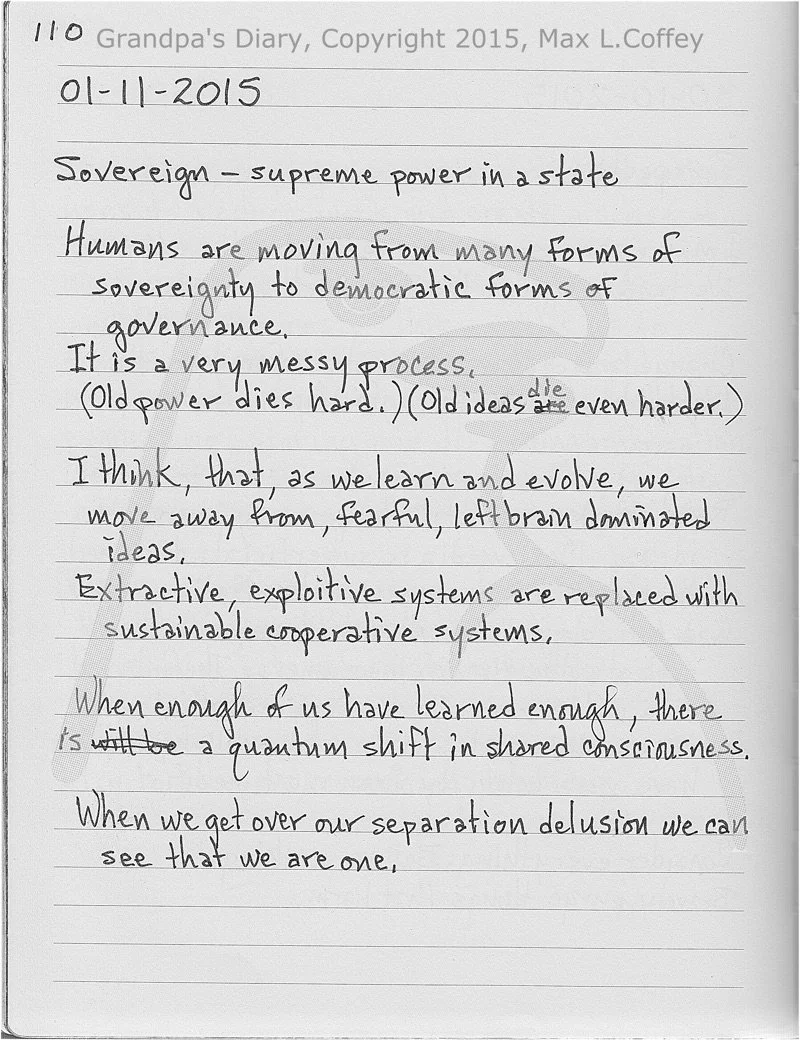 110 Grandpa's Diary, Copyright 2015, Max L.Coffey
01-11-2015
Sovereign – supreme power in a state
Humans are moving from many forms of
sovereignty to democratic forms of
governance.
It is a very messy process.
(Old power dies hard.) (Old ideas are die even harder.)
I think, that, as we learn and evolve, we
move away from, fearful, left brain dominated
ideas.
Extractive, exploitive systems are replaced with
sustainable cooperative systems.
When enough of us have learned enough, there
is will be a quantum shift in shared consciousness.
When we get over our separation delusion we can
see that we are one.